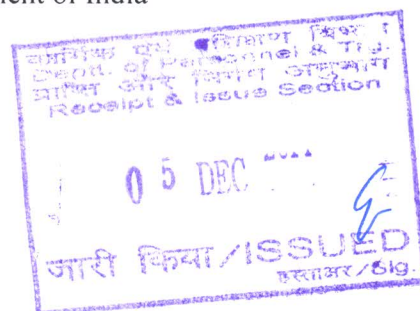 ment of India
कार्मिक एवं प्रशिक्षण विभाग
Deptt. of Personnel & Trg.
प्राप्ति और निर्गम अनुभाग
Receipt & Issue Section
05 DEC
जारी किया/ISSUED
हस्ताक्षर/Sig.